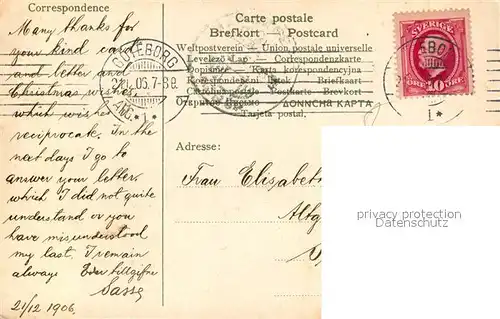 Correspondence
Many thanks for
your kind card
and letter and
Christmas wishes
which wishes I
reciprocate. In the
next days I go to
answer your letter,
which I did not quite
understand or you
have misunderstood
my last. I remain
always Eder tillgifne
Sasse
21/12 1906.
Carte postale
Brefkort — Postcard
Weltpostverein — Union postale universelle
Levelező Lap — Correspondenzkarte
Dopisnice — Karta korespondencyjna
Korrespondenzkort — Briefkaart
Cartolina postale Postkarte Brevkort
Открытое Письмо
Tarjeta postal.
GÖTEBORG
SVERIGE
10 ÖRE
Adresse:
Frau Elisabeth
privacy protection
Datenschutz